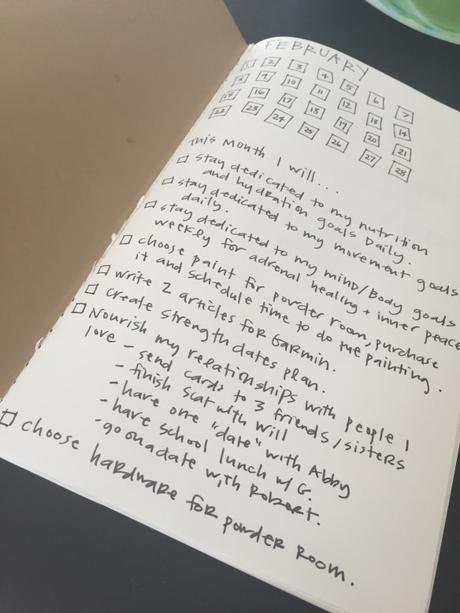 FEBRUARY
1 2 3 4 5 6 7
8 9 10 11 12 13 14
15 16 17 18 19 20 21
22 23 24 25 26 27 28
This Month I will...
stay dedicated to my nutrition
and hydration goals daily.
stay dedicated to my movement goals
daily.
stay dedicated to my mind/body goals
weekly for adrenal healing + inner peace
choose paint for powder room, purchase
it and schedule time to do the painting.
write 2 articles for Garmin.
create strength dates plan.
Nourish my relationships with people I
love -
- send cards to 3 friends/sisters
- finish scat with will
- have one "date" with Abby
- have school lunch w/ G.
- go on a date with Robert.
choose hardware for powder room.